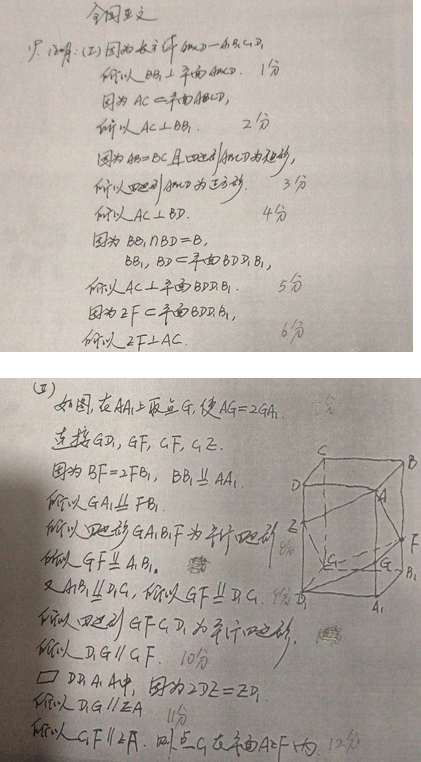 全国卷文
18. 证明:(Ⅰ)因为长方体ABCD—A₁B₁C₁D₁
所以 BB₁⊥平面ABCD. 1分
因为 AC⊂平面ABCD,
所以 AC⊥BB₁. 2分
因为AB=BC且四边形ABCD为矩形,
所以四边形ABCD为正方形. 3分
所以 AC⊥BD. 4分
因为 BB₁∩BD=B,
BB₁, BD⊂平面BDD₁B₁,
所以 AC⊥平面BDD₁B₁. 5分
因为 EF⊂平面BDD₁B₁,
所以 EF⊥AC. 6分
(Ⅱ)
如图,在AA₁上取点G,使AG=2GA₁.
连接GD₁, GF, C₁F, C₁E.
因为 BF=2FB₁, BB₁∥AA₁
所以 GA₁∥FB₁.
所以四边形GA₁B₁F为平行四边形 8分
所以 GF∥A₁B₁.
又A₁B₁∥D₁C₁, 所以GF∥D₁C₁. 9分
所以四边形GFC₁D₁为平行四边形.
所以 D₁G∥C₁F. 10分
▭DD₁A₁A中, 因为2DE=ED₁
所以 D₁G∥EA 11分
所以C₁F∥EA. 则点C₁在平面AEF内. 12分
C
B
D
A
E
F
C₁
G
B₁
D₁
A₁